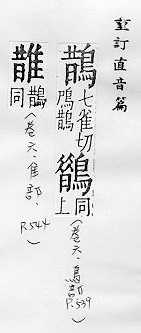 重訂直音篇
鵲七雀切
鵲
同上(卷六·鳥部 P.539)
䧿鵲同(卷六·隹部, P.544)